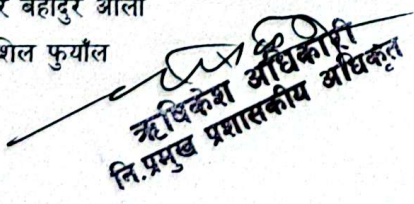 बहादुर आला
शिल फुयाँल
ऋषिकेश अधिकारी
नि.प्रमुख प्रशासकीय अधिकृत